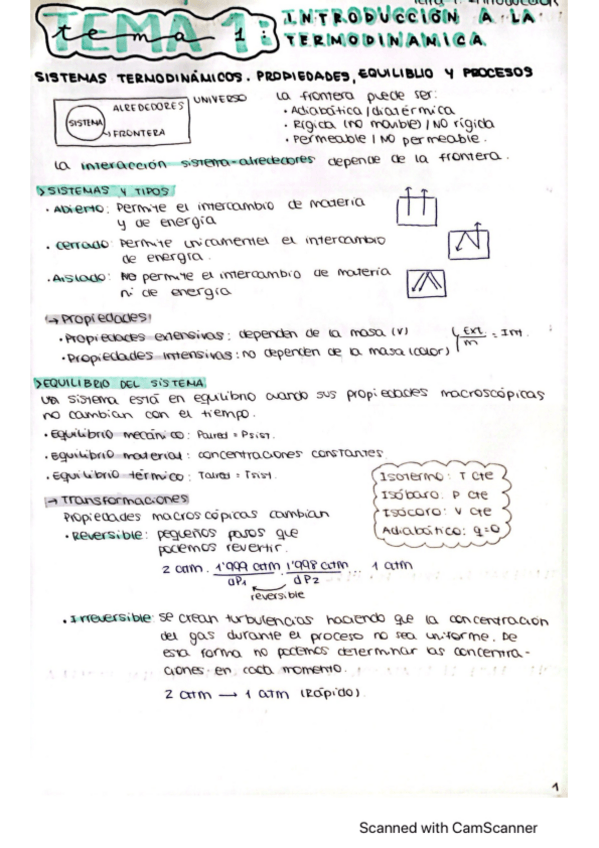 TEMA 1:
tema
INTRODUCCIÓN A LA
TERMODINAMICA
SISTEMAS TERMODINÁMICOS. PROPIEDADES, EQUILIBLIO Y PROCESOS
ALREDEDORES
UNIVERSO
SISTEMA
FRONTERA
La frontera puede ser:
• Adiabática / diatérmica
• Rígida (no movible) / NO rígida
• Permeable / NO permeable.
La interacción sistema-alrededores depende de la frontera.
> SISTEMAS Y TIPOS
• Abierto: Permite el intercambio de materia
y de energía
• Cerrado: Permite unicamentel el intercambio
de energía.
• Aislado: NO permite el intercambio de materia
ni de energía
→ Propiedades
• Propiedades extensivas: dependen de la masa (V)
• Propiedades intensivas: no dependen de la masa (color)
Ext. / m = Int.
> EQUILIBRIO DEL SISTEMA
Un sistema está en equilibrio cuando sus propiedades macroscópicas
no cambian con el tiempo.
• Equilibrio mecánico: Pared = Psist.
• Equilibrio material: concentraciones constantes
• Equilibrio térmico: Tared = Tsist.
Isotermo: T cte
Isóbaro: P cte
Isócoro: V cte
Adiabático: q=0
→ Transformaciones
Propiedades macroscópicas cambian
• Reversible: pequeños pasos que
podemos revertir.
2 atm. 1'999 atm . 1'998 atm ... 1 atm
dP1 dP2
reversible
• Irreversible: se crean turbulencias haciendo que la concentración
del gas durante el proceso no sea uniforme. De
esta forma no podemos determinar las concentra-
ciones en cada momento.
2 atm → 1 atm (Rápido)
1
Scanned with CamScanner